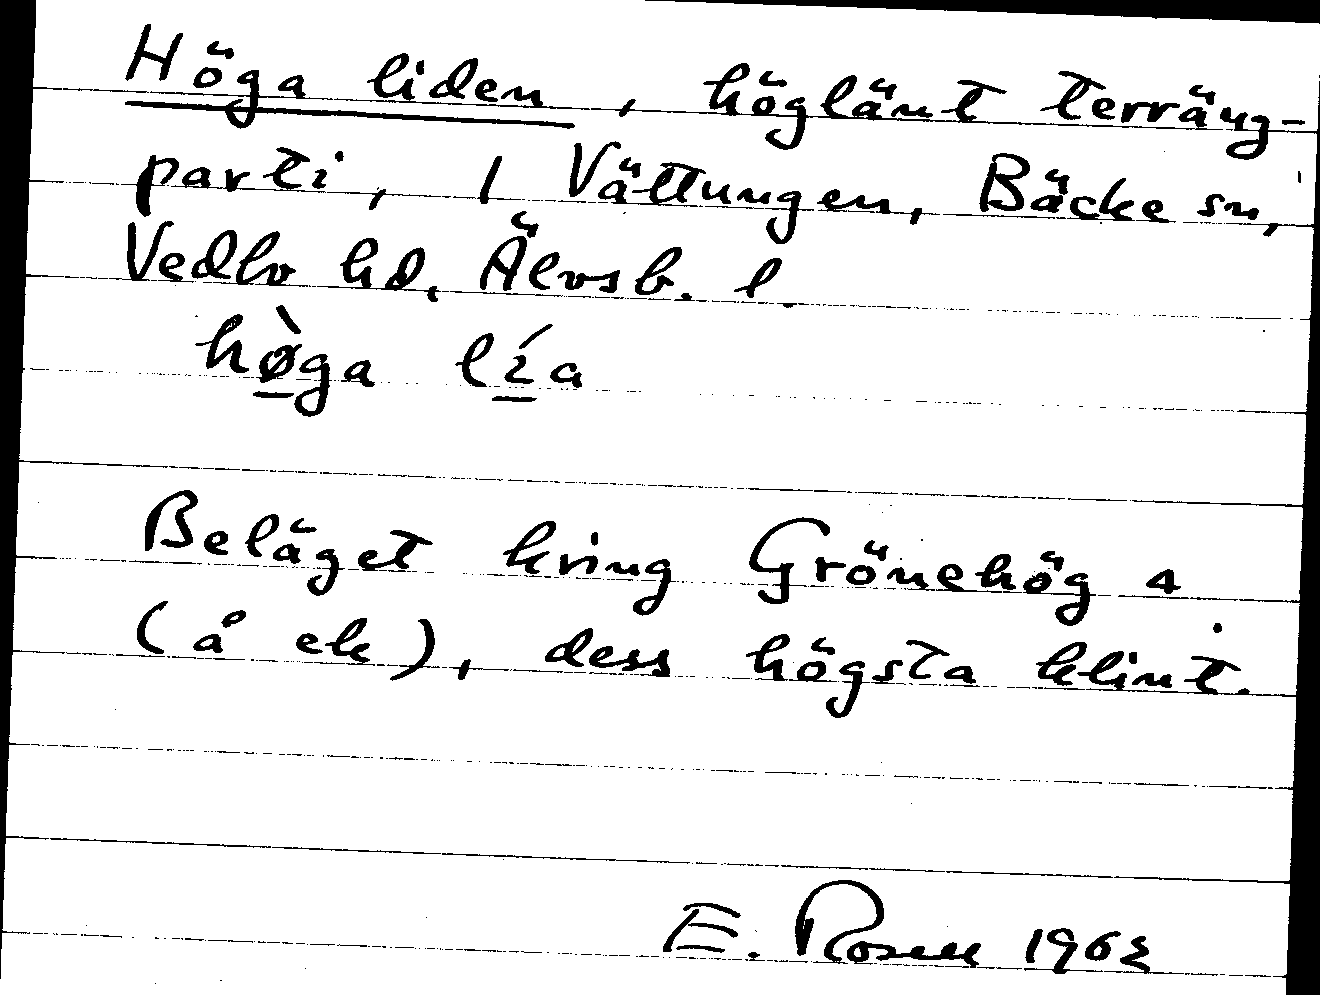 Höga liden, höglänt terräng-
parti, 1 Vättungen, Bäcke sn,
Vedbo hd, Älvsb. l.
hø̀ga lía
Beläget kring Grönehög 4
(å ek), dess högsta klint.
E. Rosell 1962